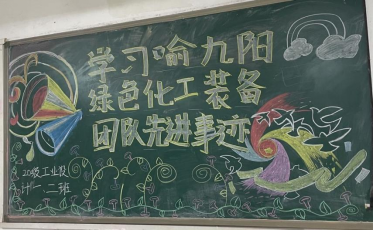 学习喻九阳
绿色化工装备
团队先进事迹
20级工业设
计一二班